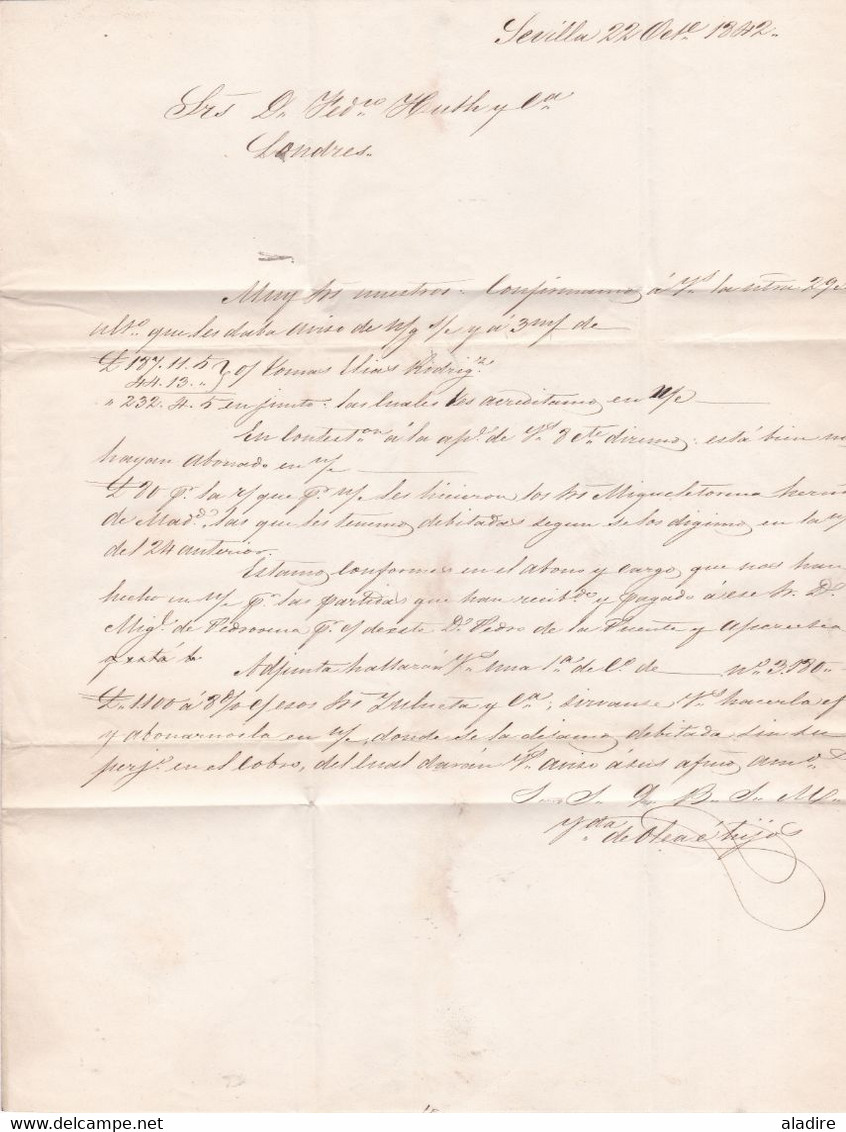 Sevilla 22 Oct.e 1842.
Srs D.n Fed.co Huth y C.a
Londres.
Muy Srs nuestros. Confirmamos á V.s la ntra 29
ult.o que les daba aviso de n/g s/c y á 3 m/f de
£ 187. 11. 5
44. 13. " o/ Tomas Elias Rodrig.z
" 232. 4. 5 en junto: las cuales les acreditamos en n/c
En contest.on á la ap.da de V.s 8 cte diremos: está bien no
hayan abonado en n/c
p.r la r/ que p.r n/c les hicieron los Srs Miqueletorena herm
de Mad.d, las que les tenemos debitadas segun se los digimos en la n/
del 24 anterior.
Estamos conformes en el abono y cargo que nos han
hecho en n/c p.r las partidas que han recib.do y pagado á ese Sr. D.
Mig.l de p.r c/ de este D.n Pedro de la Puente y Aparecida
q.e está b
Adjunta hallarán V.s una 1.a de C.o de n.o 3.080
£ 1100 á 8 d/v c/ esos Srs Zulueta y C.a; sirvanse V.s hacerla ef
y abonarnosla en n/c, donde se la dejamos debitada sin su
perj.o en el cobro, del cual darán V.s aviso á sus af.mos am.s
S. S. Q. B. S. M.
V.da de Olea é hijos
aladire